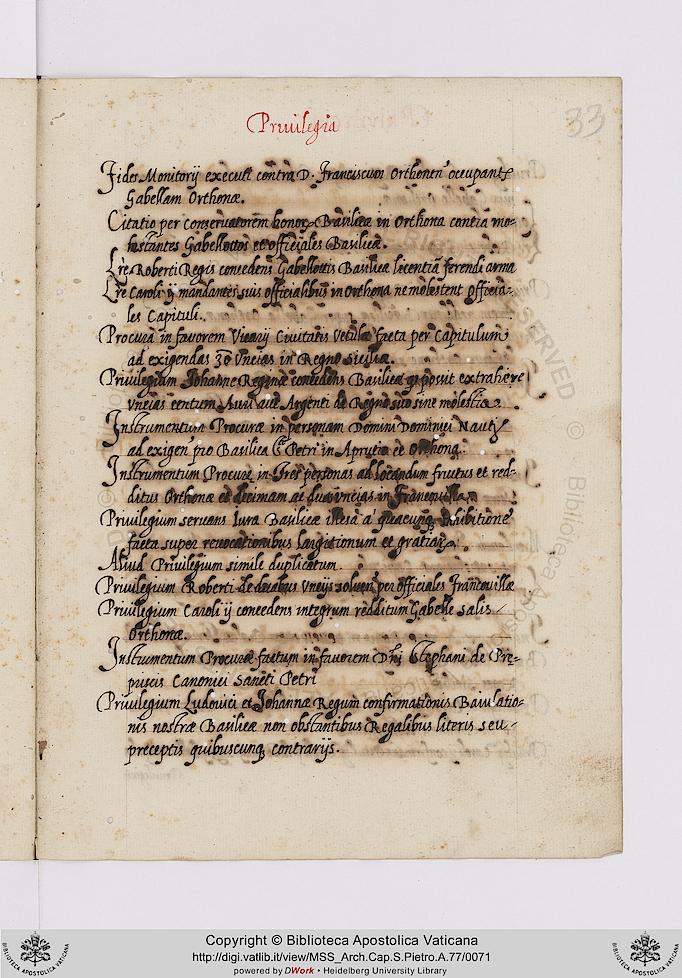 Priuilegia
33
Fides Monitorij executi contra D. Franciscum Orthonen̄ occupantē
Gabellam Orthonæ.
Citatio per conseruatorem honor. Basilicæ in Orthona contra mo-
lestantes Gabellottos et officiales Basilicæ.
Lr̄e Roberti Regis concedens Gabellottis Basilicæ licentiā ferendi arma
Lr̄e Caroli ij mandantes suis officialibus in Orthona ne molestent officia-
les Capituli.
Procura in fauorem Vicarij Ciuitatis Vetulæ facta per Capitulum
ad exigendas 30 vncias in Regno siciliæ.
Priuilegium Johannæ Reginæ concedens Basilicæ q̄ possit extrahere
vncias centum Auri aut Argenti de Regno suo sine molestia.
Instrumentum Procuræ in personam Domini Dominici
ad exigen̄ pro Basilica S. Petri in Aprutio et Orthona.
Instrumentum Procuræ in Tres personas ad locandum fructus et red-
ditus Orthonæ et decimam ac duas vncias in Francauilla
Priuilegium seruans Iura Basilicæ illesa a quacunq. exhibitione
facta super reuocationibus largitionum et gratiarum.
Aliud Priuilegium simile duplicatum.
Priuilegium Roberti de duabus vncijs soluen̄ per officiales Francauillæ
Priuilegium Caroli ij concedens integrum redditum Gabelle salis
Orthonæ.
Instrumentum Procuræ factum in fauorem Dn̄i Stephani de Pre-
Canonici Sancti Petri
Priuilegium Ludouici et Johannæ Regum confirmationis Baiulatio-
nis nostræ Basilicæ non obstantibus Regalibus literis seu
preceptis quibuscunq. contrarijs.
Copyright © Biblioteca Apostolica Vaticana
http://digi.vatlib.it/view/MSS_Arch.Cap.S.Pietro.A.77/0071
powered by DWork • Heidelberg University Library